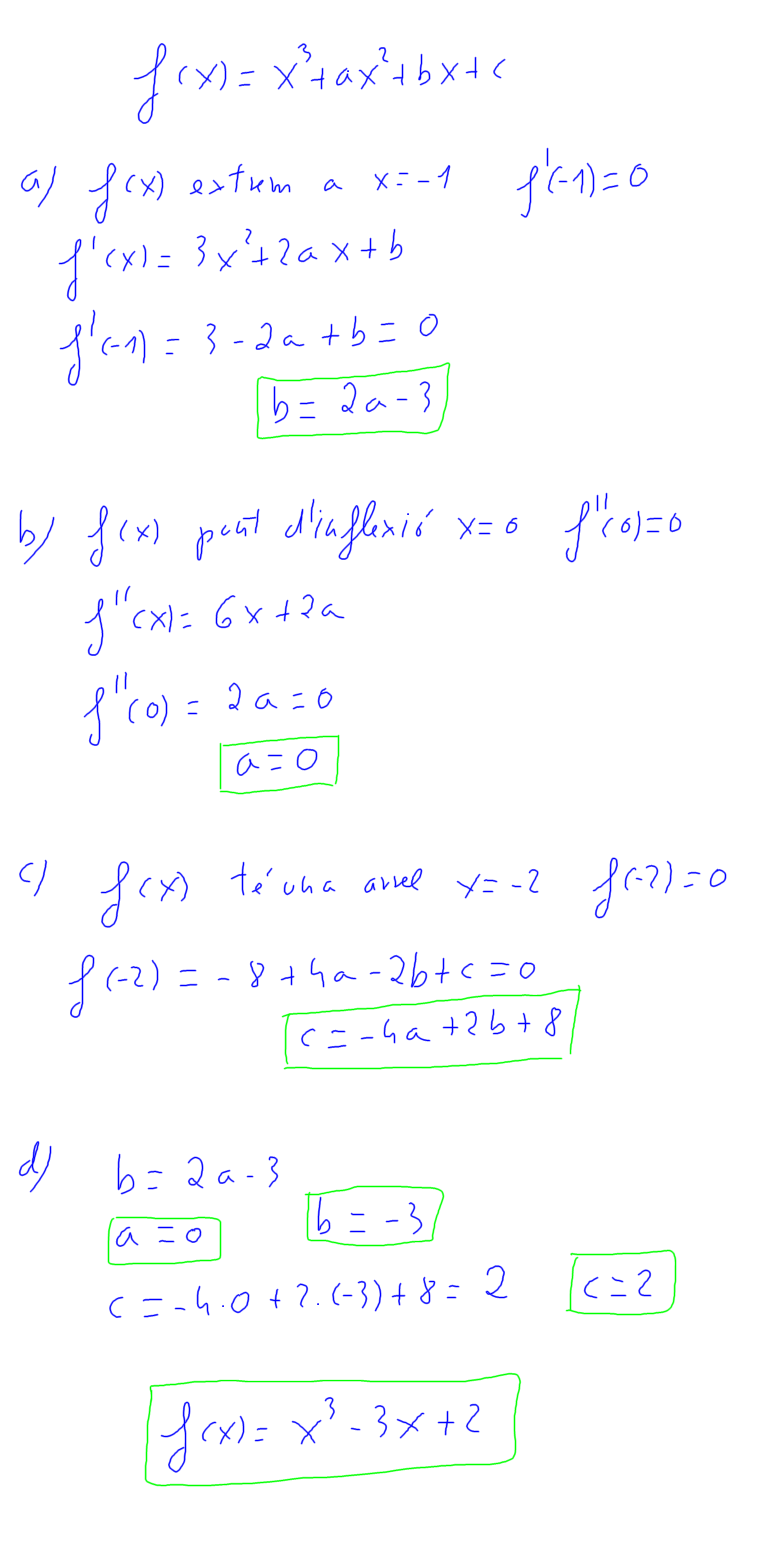 f(x) = x³+ax²+bx+c
a) f(x) extrem a x=-1 f'(-1)=0
f'(x) = 3x²+2ax+b
f'(-1) = 3-2a+b=0
b = 2a-3
b) f(x) punt d'inflexió x=0 f''(0)=0
f''(x) = 6x+2a
f''(0) = 2a=0
a=0
c) f(x) té una arrel x=-2 f(-2)=0
f(-2) = -8+4a-2b+c=0
c=-4a+2b+8
d) b= 2a-3
a=0 b=-3
c=-4·0+2·(-3)+8=2 c=2
f(x) = x³-3x+2